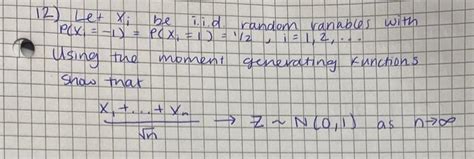 12) Let Xi be i.i.d random variables with
P(Xi = -1) = P(Xi = 1) = 1/2 , i = 1, 2, ...
Using the moment generating functions
show that
X1 + ... + Xn / √n → Z ~ N(0,1) as n→∞